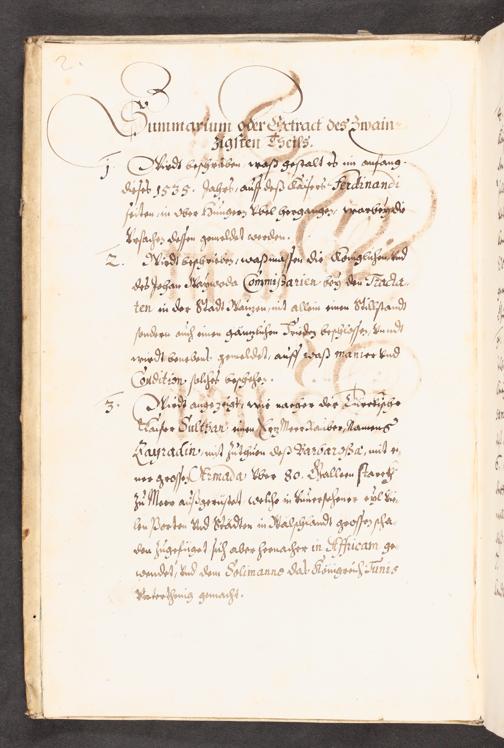 2.
Summarium oder Extract des Zwain-
zigsten Theils.
1. Wirdt beschriben, waß gestalt es im anfang
dieses 1535. Jahrs, auf deß Kaisers Ferdinandi
seiten, in Ober Hungern übel hergangen, warbey die
Vrsachen dessen gemeldet werden.
2. Wirdt beschrieben, waßmassen die Königlichen und
des Johan Waywoda Commissarien bey den Tracta-
ten in der Stadt Waitzen, nit allein einen Stillstandt
sondern auch einen gänzlichen Frieden beschlossen, unndt
wirdt benebens gemeldet, auff waß manier und
Condition solches beschehen.
3. Wirdt angezeigt, wie nacher der Türckische
Kaiser Sultan einen Meer Rauber, Namens
Hayradin, mit Zunamen deß Barbarossa, mit ei-
ner grossen Armada über 80. Galleen starck
zu Meer außgerüstet, welche in unversehener eyl vie-
len Porten und Stadten in Wälschlandt grossen scha-
den zugefüget, sich aber hernacher in Affricam ge-
wendet, und dem Solimanno das Königreich Tunis
unterthenig gemacht.